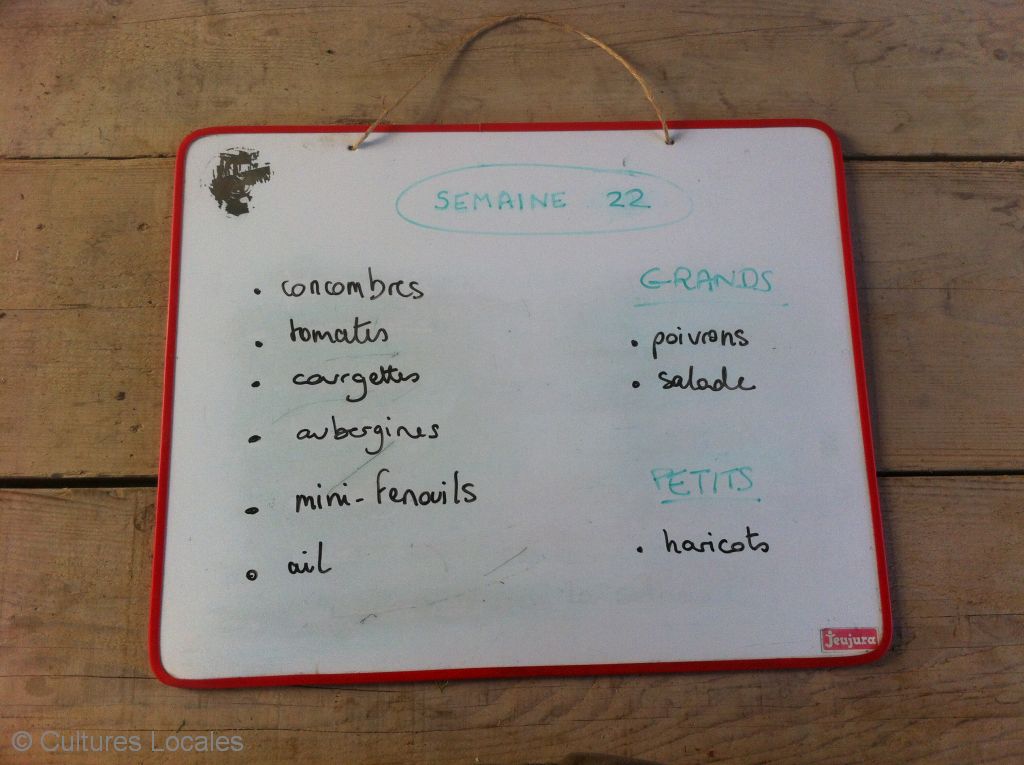 SEMAINE 22
• concombres
• tomates
• courgettes
• aubergines
• mini-fenouils
• ail
GRANDS
• poivrons
• salade
PETITS
• haricots
Jeujura
© Cultures Locales